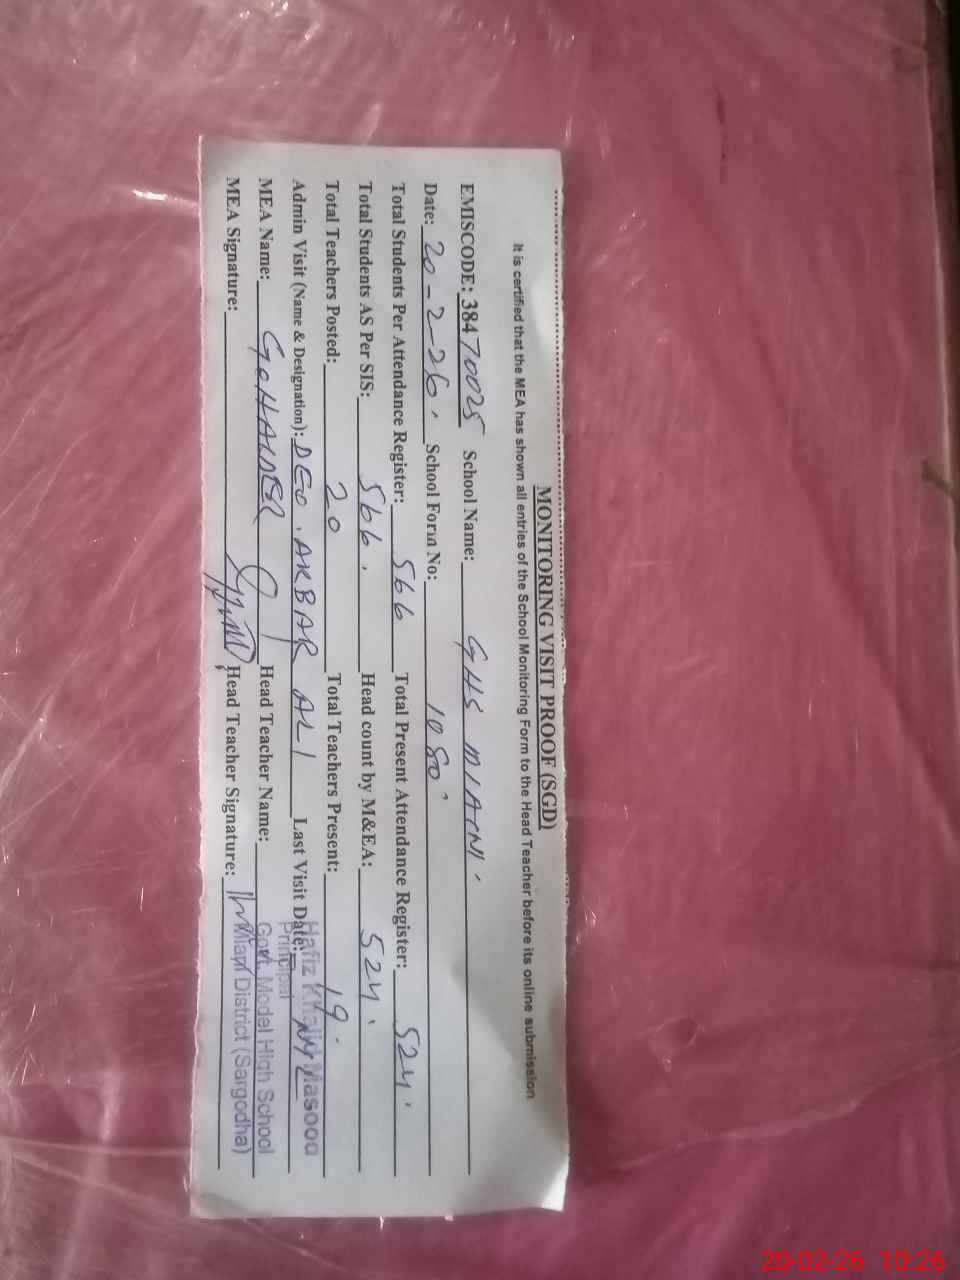 MONITORING VISIT PROOF (SGD)
It is certified that the MEA has shown all entries of the School Monitoring Form to the Head Teacher before its online submission
EMISCODE: 38470025 School Name: GHS MIANI.
Date: 20-2-26. School Form No: 1080
Total Students Per Attendance Register: 566 Total Present Attendance Register: 524.
Total Students AS Per SIS: 566. Head count by M&EA: 524.
Total Teachers Posted: 20 Total Teachers Present: 19.
Admin Visit (Name & Designation): DEO. AKBAR ALI Last Visit Date:
MEA Name: Head Teacher Name:
MEA Signature: Head Teacher Signature:
Hafiz Khalid Masood
Principal
Govt. Model High School
Miani District (Sargodha)
20-02-26 10:26